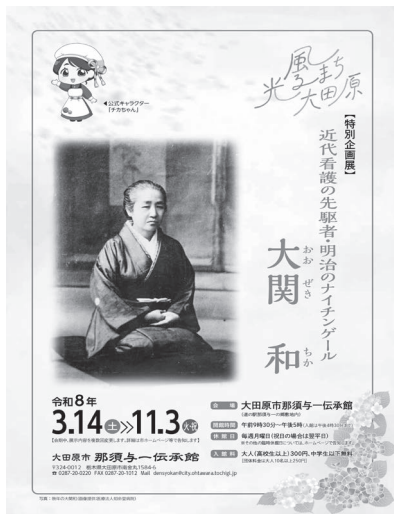 風
光るまち
大田原
◀公式キャラクター
「チカちゃん」
【特別企画展】
近代看護の先駆者・明治のナイチンゲール
大関 和
おお ぜき ちか
令和8年
3.14 土 ≫ 11.3 火・祝
【会期中、展示内容を複数回変更します。詳細は市ホームページ等で告知します】
大田原市 那須与一伝承館
〒324-0012 栃木県大田原市南金丸1584-6
☎ 0287-20-0220 FAX 0287-20-1012 Mail densyokan@city.ohtawara.tochigi.jp
会場 大田原市那須与一伝承館
(道の駅那須与一の郷敷地内)
開館時間 午前9時30分～午後5時(入館は午後4時30分まで)
休館日 毎週月曜日(祝日の場合は翌平日)
※その他の臨時休館日については、ホームページで告知します。
入館料 大人(高校生以上)300円、中学生以下無料
【団体料金は大人10名以上250円】